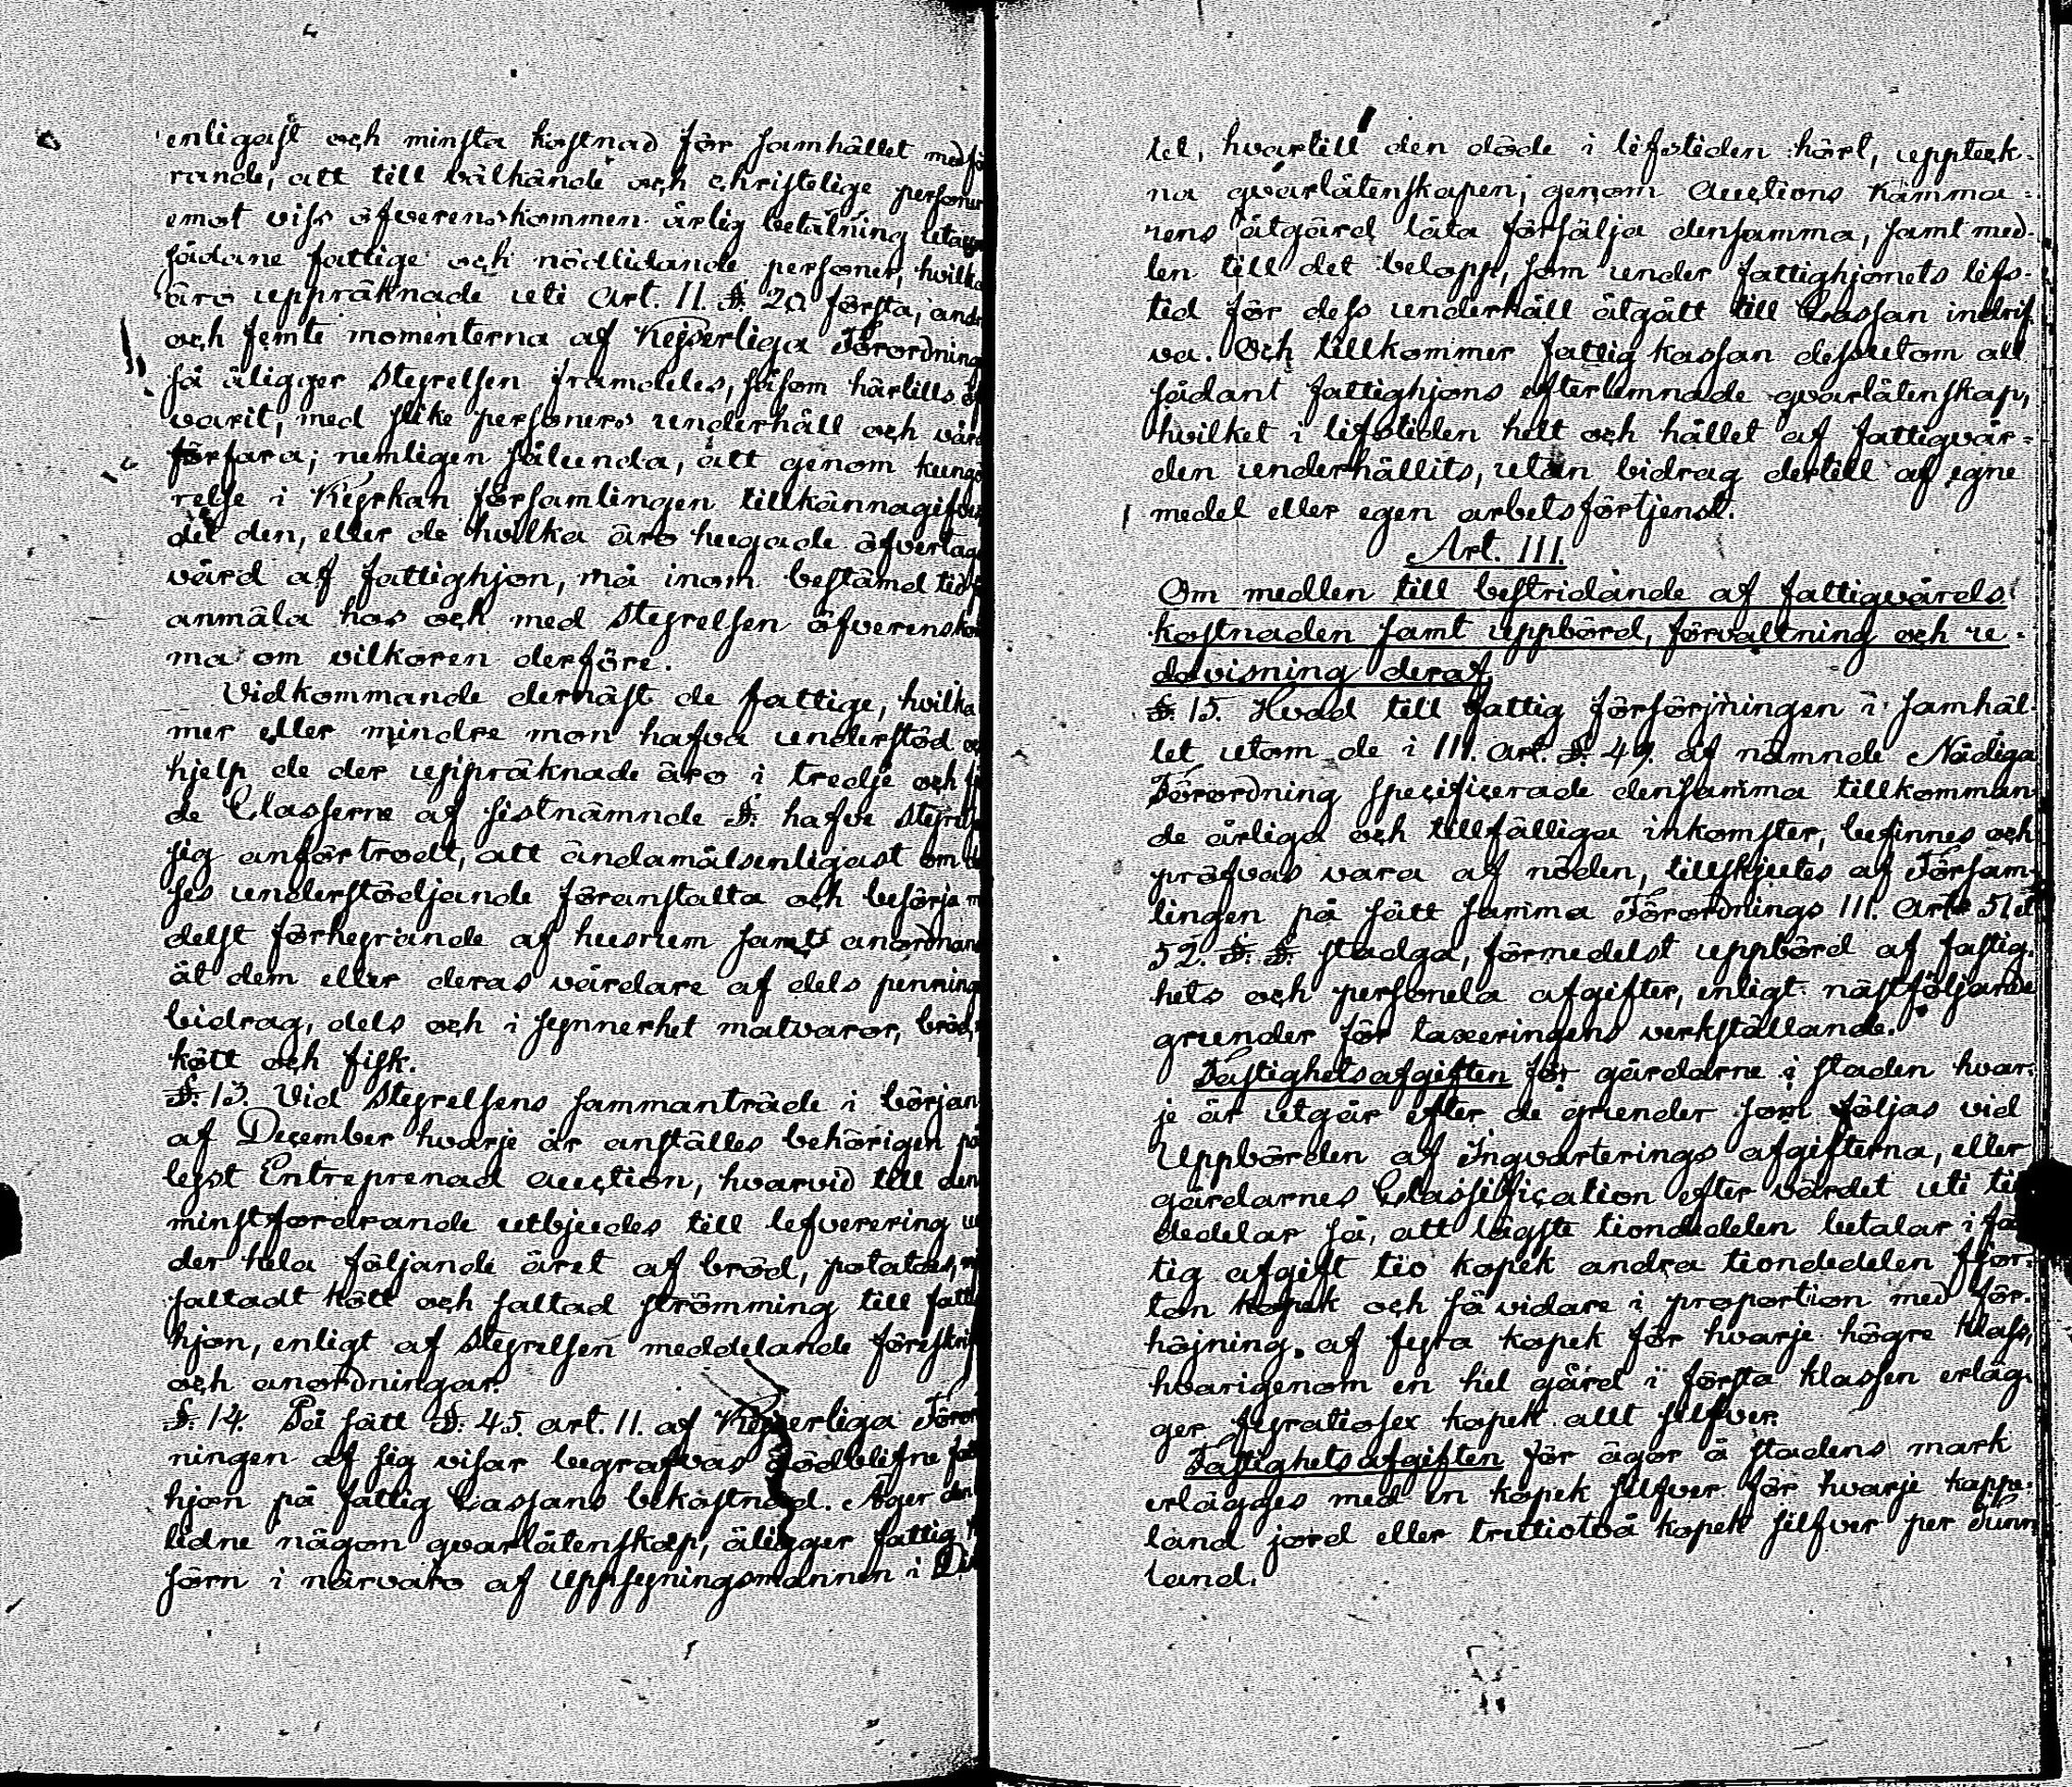 enligast och minsta kostnad för samhället medfö
rande, att till välkände och christelige personer
emot viss öfverenskommen årlig betalning uttaga
sådane fattige och nödlidande personer, hvilka
äro uppräknade uti Art. II. §. 20 första, andr
och femte momenterna af Kejserliga Förordning
så åligger Styrelsen framdeles, såsom härtills
varit, med slike personers underhåll och vård
förfara; nemligen sålunda, att genom kungö
relse i Kyrkan församlingen tillkännagifver
det den, eller de hvilka äro hugade öfvertaga
vård af fattighjon, må inom bestämd tid
anmäla hos och med Styrelsen öfverenskom
ma om vilkoren derföre.
Vidkommande dernäst de fattige, hvilka
mer eller mindre mon hafva understöd
hjelp de der uppräknade äro i tredje och
de Classerne af sistnämnde §. hafve Styrelse
sig anförtrodt, att ändamålsenligast om de
ses understödjande föranstalta och besörja
delst förhyrande af husrum samt anordnan
åt dem eller deras vårdare af dels penning
bidrag, dels och i synnerhet matvaror, bröd,
kött och fisk.
§. 13. Vid Styrelsens sammanträde i början
af December hvarje år anställes behörigen på
lyst Entreprenad auction, hvarvid till den
minstfordrande utbjudes till lefverering un
der hela följande året af bröd, potatoes,
saltadt kött och saltad strömming till fattig
hjon, enligt af Styrelsen meddelande föreskrif
och anordningar.
§. 14. På sätt §. 45. art. II. af Kejserliga Föror
ningen af sig visar begrafvas dödblifne fatt
hjon på fattig Cassans bekostnad. Äger den
lidne någon qvarlåtenskap, åligger fattig
sörn i närvaro af Uppsyningsmannen i Di
tet, hvartill den döde i lifstiden hört, upptek-
na qvarlåtenskapen, genom Auctions Kamma-
rens åtgärd låta försälja densamma, samt med-
len till det belopp, som under fattighjonets lifs-
tid för dess underhåll åtgått till Cassan indrif
va. Och tillkommer fattig kassan dessutom all
sådant fattighjons efterlemnade qvarlåtenskap,
hvilket i lifstiden helt och hållet af fattigvår-
den underhållits, utan bidrag dertill af egne
medel eller egen arbetsförtjenst.
Art. III.
Om medlen till bestridande af fattigvårds
kostnaden samt uppbörd, förvaltning och re-
dovisning deraf.
§. 15. Hvad till fattig försörjningen i samhäl-
let utom de i III. Art. §. 49. af nämnde Nådiga
Förordning specificerade densamma tillkomman
de årliga och tillfälliga inkomster, befinnes och
pröfvas vara af nöden, tillskjutes af Församl-
lingen på sätt samma Förordnings III. Art. 51 et
52. §. §. stadga, förmedelst uppbörd af fastig-
hets och personela afgifter, enligt nästföljande
grunder för taxeringens verkställande.
Fastighetsafgiften för gårdarne i staden hvar-
je år utgår efter de grunder som följas vid
Uppbörden af Inqvarterings afgifterna, eller
gårdarnes Classification efter värdet uti ti
dedelar så, att lägste tiondedelen betalar i fa
tig afgift tio kopek andra tiondedelen fjor-
ton kopek och så vidare i proportion med för-
höjning af fyra kopek för hvarje högre klass,
hvarigenom en hel gård i första klassen erläg-
ger fyratiosex kopek allt silfver.
Fastighetsafgiften för ägor å stadens mark
erlägges med en kopek silfver för hvarje kappe-
land jord eller trettiotvå kopek silfver per Tunn
land.